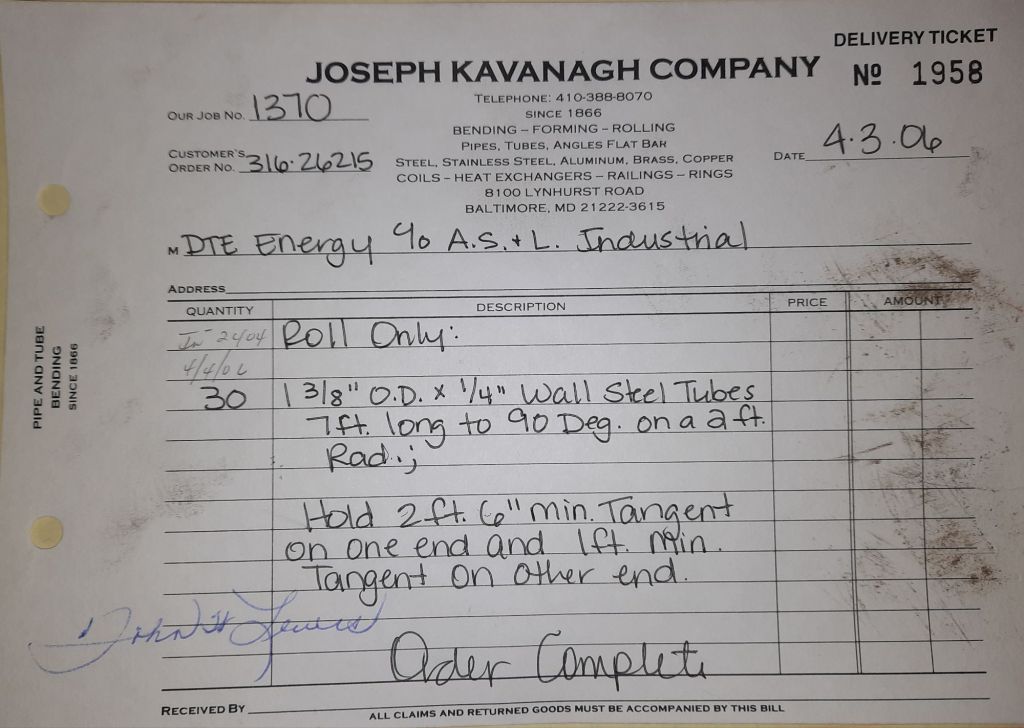 DELIVERY TICKET
JOSEPH KAVANAGH COMPANY
Nº 1958
OUR JOB NO. 1370
TELEPHONE: 410-388-8070
SINCE 1866
BENDING – FORMING – ROLLING
PIPES, TUBES, ANGLES FLAT BAR
CUSTOMER'S
ORDER NO. 316·26215
STEEL, STAINLESS STEEL, ALUMINUM, BRASS, COPPER
DATE 4·3·06
COILS – HEAT EXCHANGERS – RAILINGS – RINGS
8100 LYNHURST ROAD
BALTIMORE, MD 21222-3615
M DTE Energy c/o A.S. + L. Industrial
ADDRESS
QUANTITY DESCRIPTION PRICE AMOUNT
Roll Only:
30 1 3/8" O.D. x 1/4" Wall Steel Tubes
7ft. long to 90 Deg. on a 2ft.
Rad.;
Hold 2ft. 6" min. Tangent
on one end and 1ft. Min.
Tangent on other end.
Order Complete
RECEIVED BY
ALL CLAIMS AND RETURNED GOODS MUST BE ACCOMPANIED BY THIS BILL
PIPE AND TUBE
BENDING
SINCE 1866